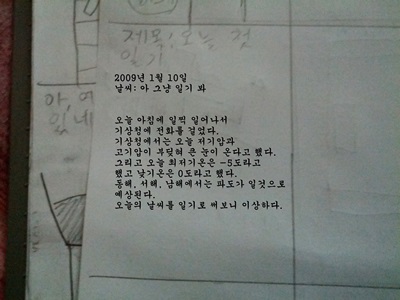 제목: 오늘 첫
일기
2009년 1월 10일
날씨: 아 그냥 일기 봐
아, 여
있네
오늘 아침에 일찍 일어나서
기상청에 전화를 걸었다.
기상청에서는 오늘 저기압과
고기압이 부딪혀 큰 눈이 온다고 했다.
그리고 오늘 최저기온은 -5도라고
했고 낮기온은 0도라고 했다.
동해, 서해, 남해에서는 파도가 일것으로
예상된다.
오늘의 날씨를 일기로 써보니 이상하다.